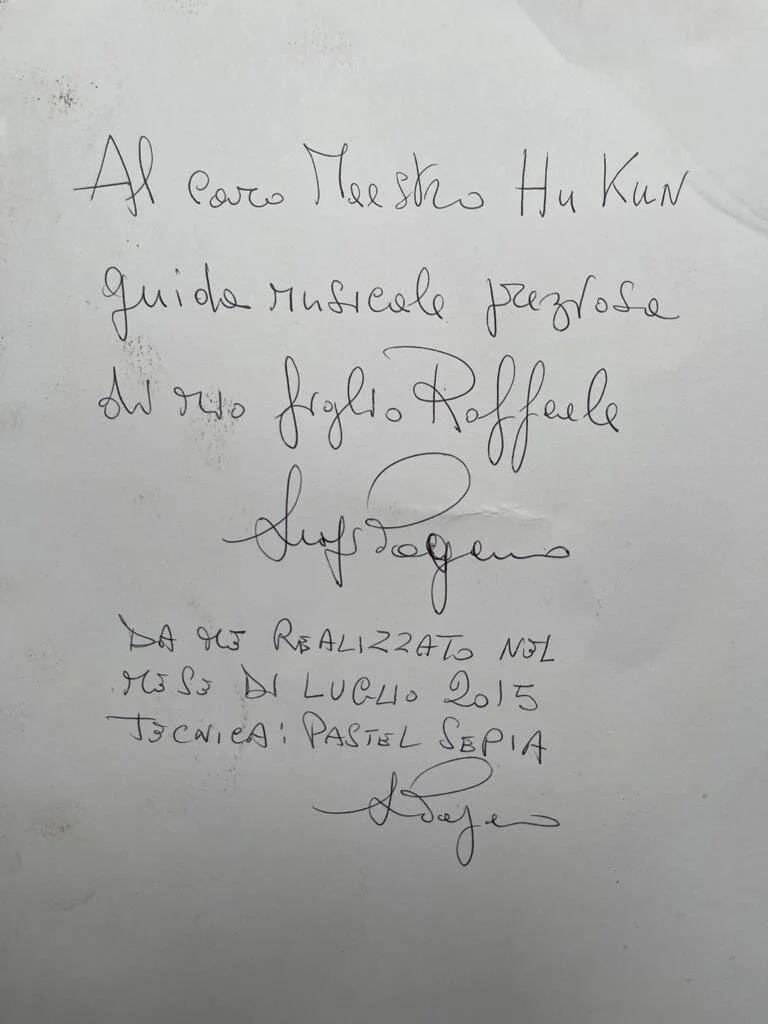 Al caro Maestro Hu Kun
guida musicale preziosa
di mio figlio Raffaele
DA ME REALIZZATO NEL
MESE DI LUGLIO 2015
TECNICA: PASTEL SEPIA